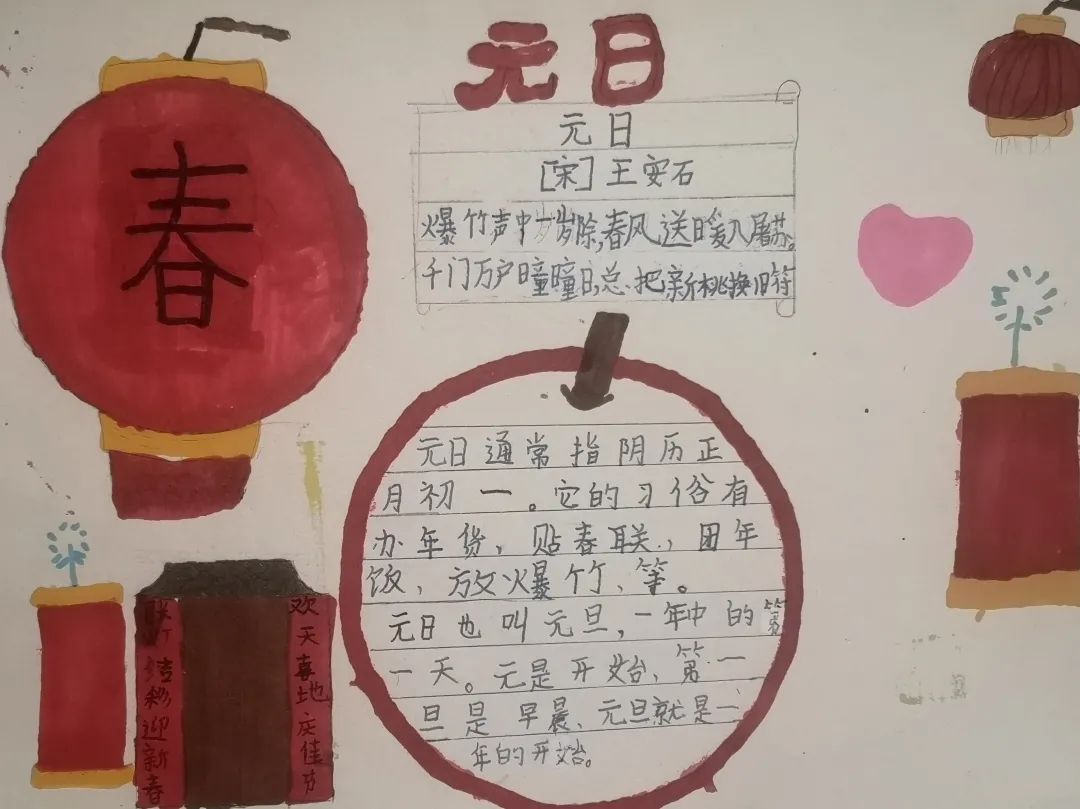 元日
春
元日
[宋]王安石
爆竹声中一岁除,春风送暖入屠苏。
千门万户曈曈日,总把新桃换旧符
元日通常指阴历正
月初一。它的习俗有
办年货,贴春联.,团年
饭、放爆竹、等。
元日也叫元旦,一年中的第
一天。元是开始、第一
旦是早晨、元旦就是一
年的开始。
欢天喜地庆佳节
灯结彩迎新春